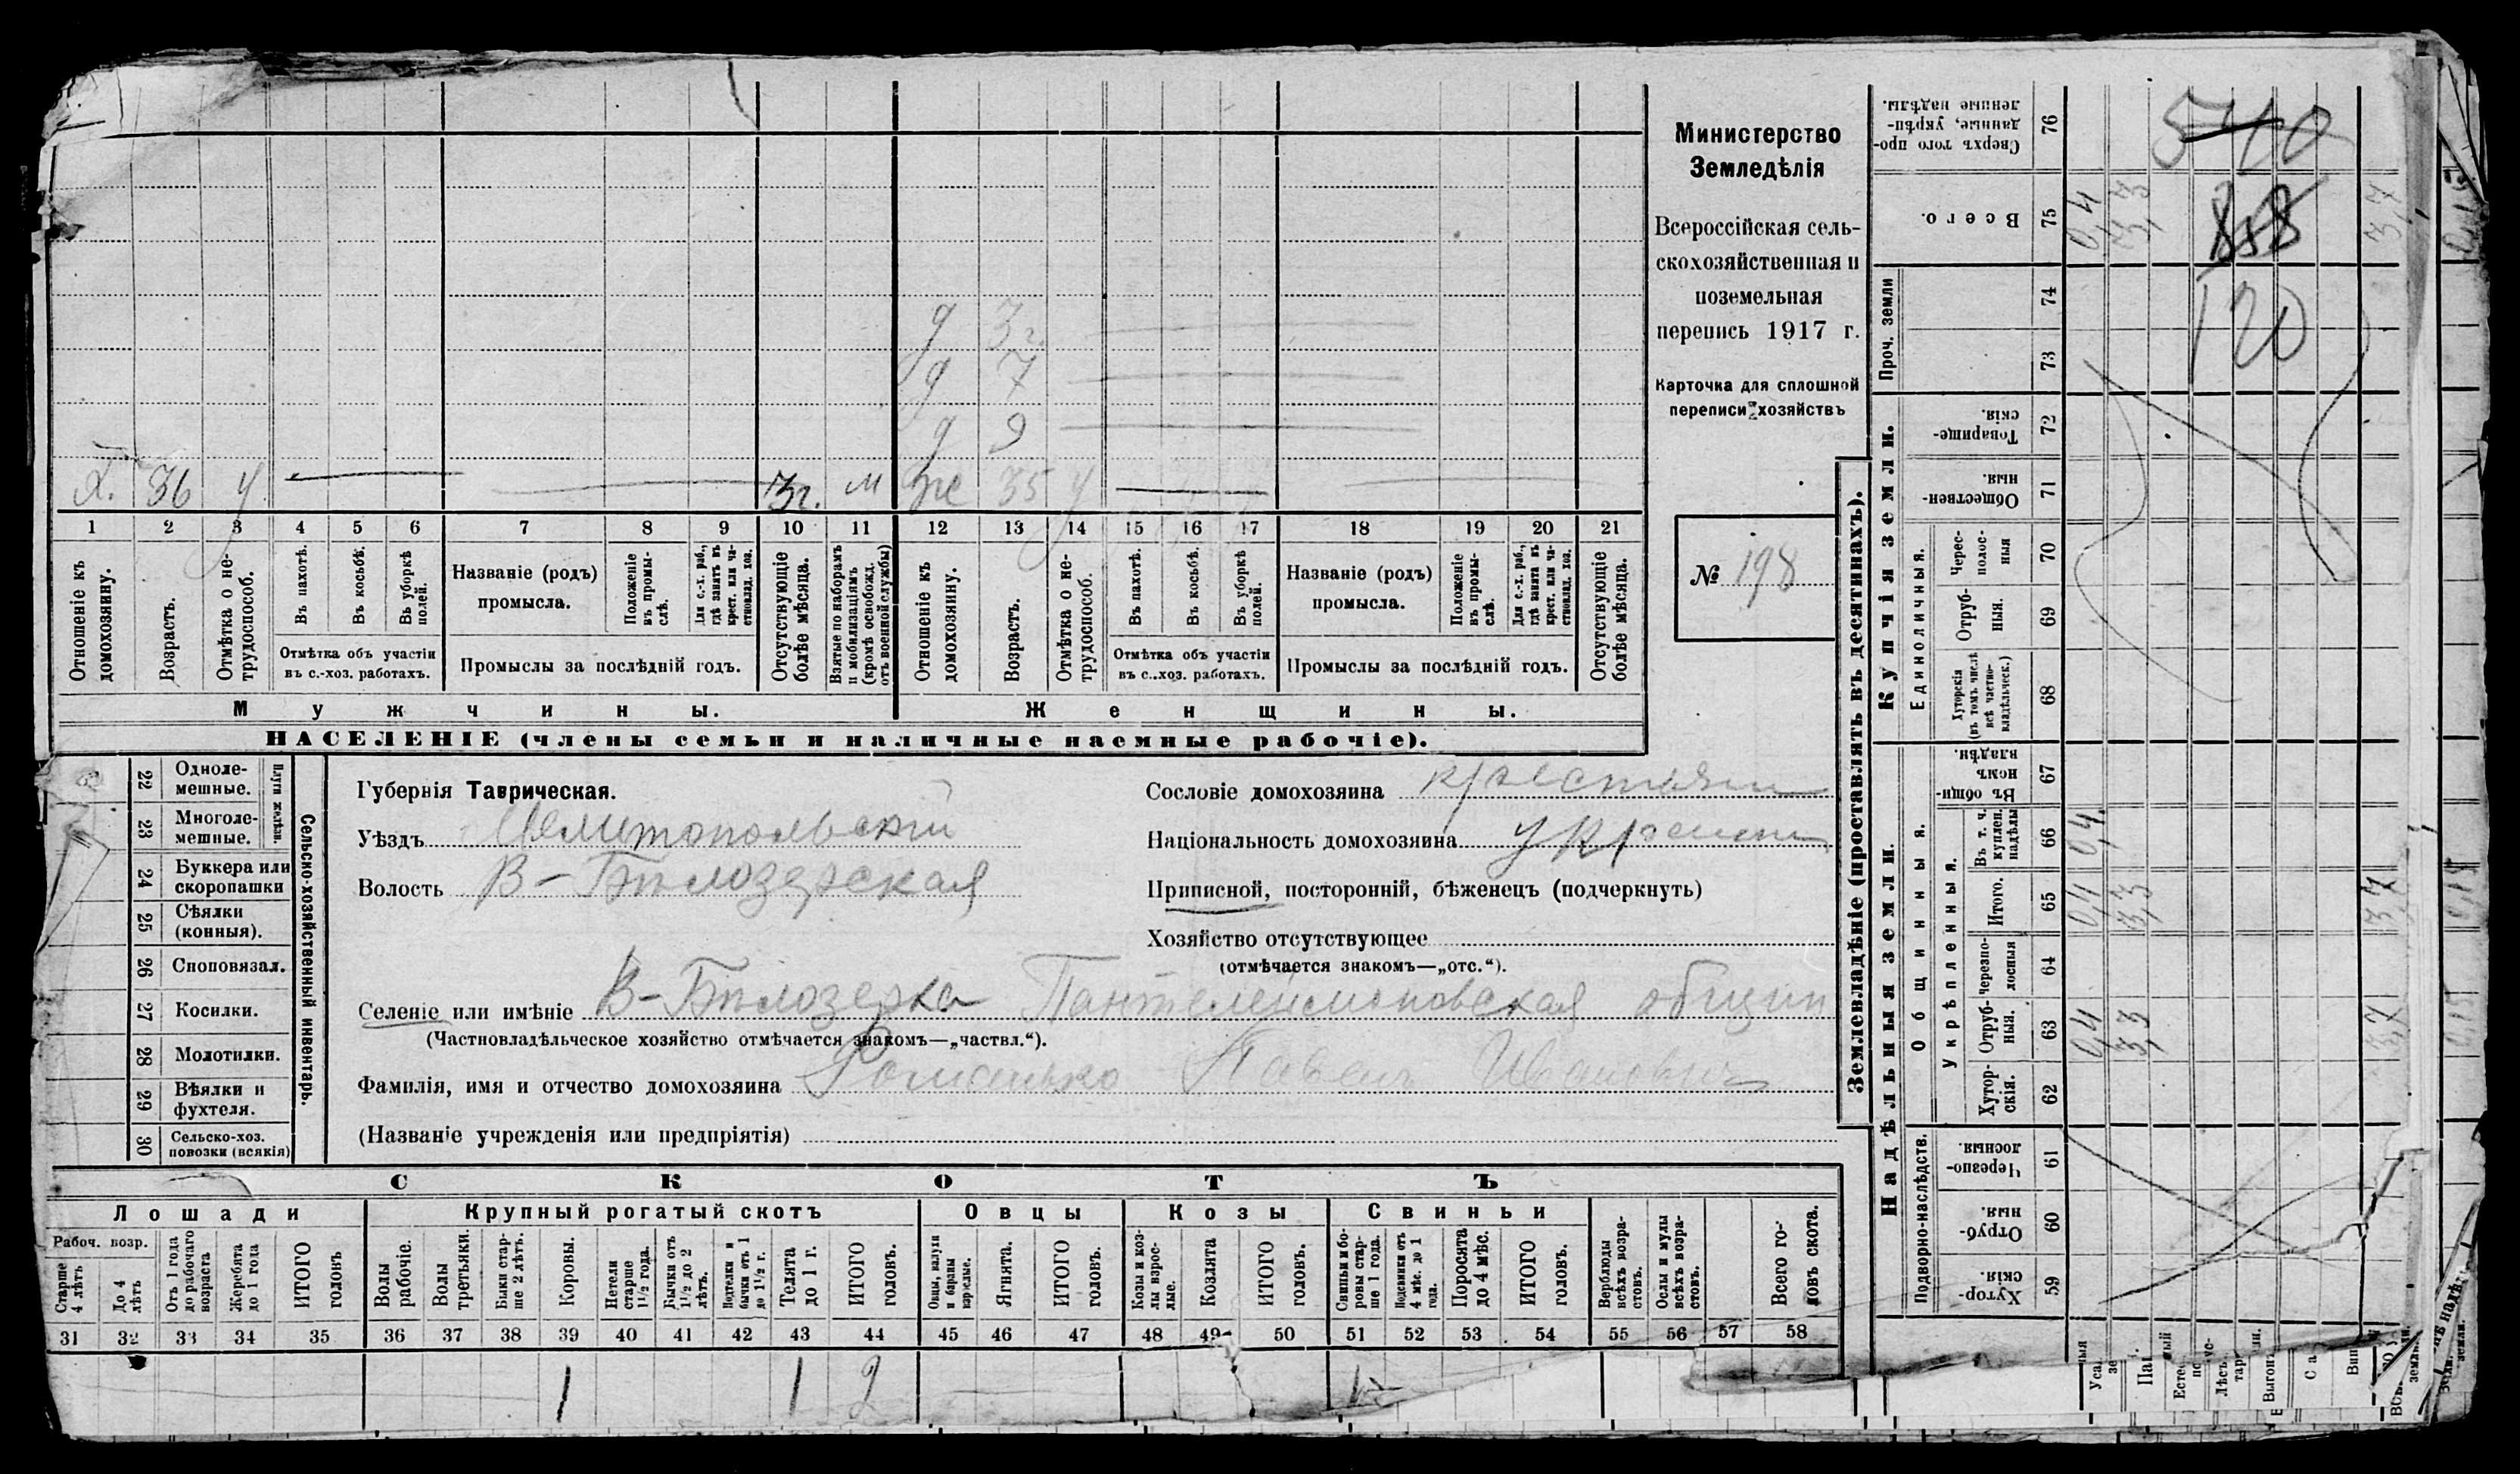 Министерство
Земледѣлія
Всероссійская сель-
скохозяйственная и
поземельная
перепись 1917 г.
Карточка для сплошной
переписи хозяйствъ
№ 198
д 3г.
д 7
д 9
х. 36 у 3г. м же 35 у
1 2 3 4 5 6 7 8 9 10 11 12 13 14 15 16 17 18 19 20 21
Отношеніе къ домохозяину.
Возрастъ.
Отмѣтка о не-трудоспособ.
Въ пахотѣ.
Въ косьбѣ.
Въ уборкѣ полей.
Отмѣтка объ участіи
въ с.-хоз. работахъ.
Названіе (родъ)
промысла.
Положеніе въ промы-слѣ.
Для с.-х. раб., гдѣ занятъ въ крест. или ча-стновлад. хоз.
Промыслы за послѣдній годъ.
Отсутствующіе болѣе мѣсяца.
Взятые по наборамъ и мобилизаціямъ (кромѣ освобожд. отъ военной службы)
Отношеніе къ домохозяину.
Возрастъ.
Отмѣтка о не-трудоспособ.
Въ пахотѣ.
Въ косьбѣ.
Въ уборкѣ полей.
Отмѣтка объ участіи
въ с.-хоз. работахъ.
Названіе (родъ)
промысла.
Положеніе въ промы-слѣ.
Для с.-х. раб., гдѣ занята въ крест. или ча-стновлад. хоз.
Промыслы за послѣдній годъ.
Отсутствующіе болѣе мѣсяца.
Мужчины.
Женщины.
НАСЕЛЕНІЕ (члены семьи и наличные наемные рабочіе).
22 Одноле-мешные.
23 Многоле-мешные.
Плуги желѣзн.
24 Буккера или скоропашки
25 Сѣялки (конныя).
26 Сноповязал.
27 Косилки.
28 Молотилки.
29 Вѣялки и фухтеля.
30 Сельско-хоз. повозки (всякія)
Сельско-хозяйственный инвентарь.
Губернія Таврическая.
Уѣздъ Мелитопольскій
Волость В-Бѣлозерская
Сословіе домохозяина крестьян
Національность домохозяина украин
Приписной, посторонній, бѣженецъ (подчеркнуть)
Хозяйство отсутствующее
(отмѣчается знакомъ—„отс.“).
Селеніе или имѣніе В-Бѣлозерка Пантелеймоновская общин
(Частновладѣльческое хозяйство отмѣчается знакомъ—„частвл.“).
Фамилія, имя и отчество домохозяина Романько Павелъ Ивановичъ
(Названіе учрежденія или предпріятія)
СКОТЪ
Лошади
Крупный рогатый скотъ
Овцы
Козы
Свиньи
Рабоч. возр.
Старше 4 лѣтъ
До 4 лѣтъ
Отъ 1 года до рабочаго возраста
Жеребята до 1 года
ИТОГО головъ
Волы рабочіе.
Волы третьяки.
Быки стар-ше 2 лѣтъ.
Коровы.
Нетели старше 1½ года.
Бычки отъ 1½ до 2 лѣтъ.
Подтелки и бычки отъ 1 до 1½ г.
Телята до 1 г.
ИТОГО головъ.
Овцы, валухи и бараны взрослые.
Ягнята.
ИТОГО головъ.
Козы и коз-лы взрос-лые.
Козлята
ИТОГО головъ.
Свиньи и бо-ровы стар-ше 1 года.
Подсвинки отъ 4 мѣс. до 1 года.
Поросята до 4 мѣс.
ИТОГО головъ.
Верблюды всѣхъ возра-стовъ.
Ослы и мулы всѣхъ возра-стовъ.
Всего го-ловъ скота.
31 32 33 34 35 36 37 38 39 40 41 42 43 44 45 46 47 48 49 50 51 52 53 54 55 56 57 58
1 1 2
Землевладѣніе (проставлять въ десятинахъ).
Купчія земли.
Надѣльныя земли.
76 Сверхъ того про-данные, укрѣп-ленные надѣлы.
540
75 Всего. 0,4 3,3 3,7
Проч. земли
74
73
120
72 Товарище-скія.
71 Обществен-ныя.
Единоличныя.
70 Черес-полос-ныя
69 Отруб-ныя.
68 Хуторскія (въ томъ числѣ всѣ частно-владѣльческ.)
Общинныя.
67 Въ общи-номъ владѣн.
Укрѣпленныя.
66 Въ т. ч. куплен. надѣлы 0,4.
65 Итого. 0,4 3,3 3,7
64 Черезпо-лосныя
63 Отруб-ныя. 0,4 3,3 3,7
62 Хутор-скія.
Подворно-наслѣдств.
61 Черезпо-лосныя
60 Отруб-ныя.
59 Хутор-скія